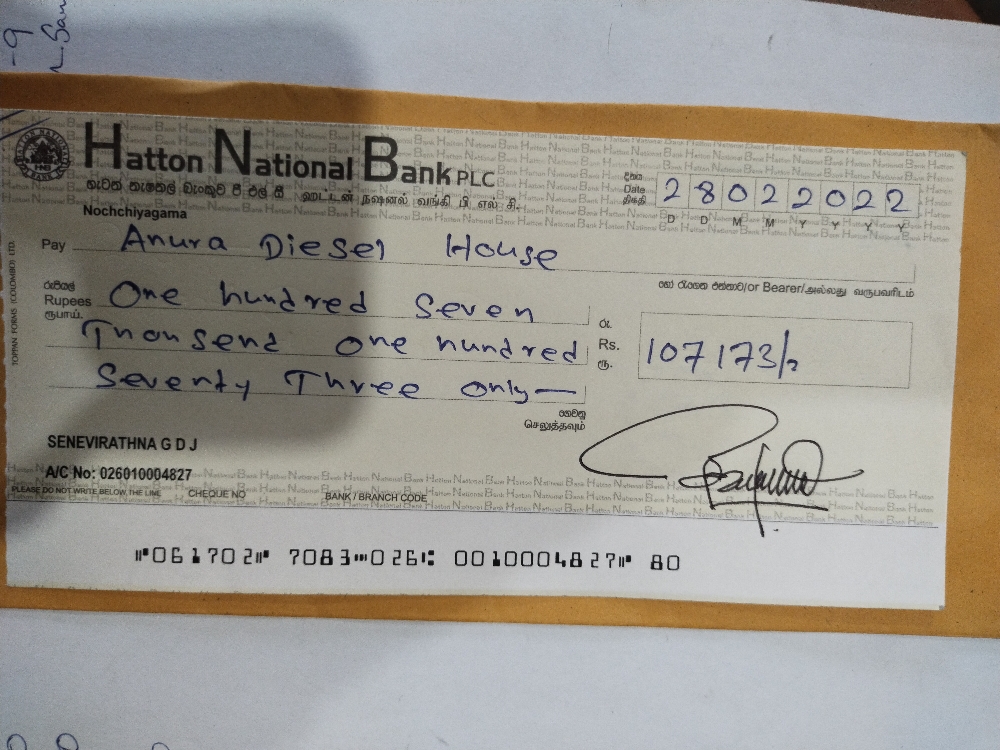 Hatton National Bank PLC
හැටන් නැෂනල් බැංකුව පී එල් සී ஹட்டன் நஷனல் வங்கி பி எல் சி.
Nochchiyagama
දිනය
Date
திகதி
2 8 0 2 2 0 2 2
D D M M Y Y Y Y
Pay Anura Diesel House
හෝ රැගෙන එන්නාට/or Bearer/அல்லது வருபவரிடம்
රුපියල්
Rupees One hundred Seven
ரூபாய்.
Thousend one hundred
Seventy Three only—
රු.
Rs. 107173/2
ரூ.
ගෙවනු
செலுத்தவும்
SENEVIRATHNA G D J
A/C No: 026010004827
PLEASE DO NOT WRITE BELOW THE LINE CHEQUE NO BANK / BRANCH CODE
⑈061702⑈ 7083⑉026⑆ 0010004827⑈ 80
TOPPAN FORMS (COLOMBO) LTD.